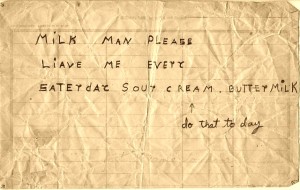 MiLK MAN PLEASE
LIAVE ME EVERY
SATERdAY SOUT CREAM. BUTTYMiLK
↑
do that to day